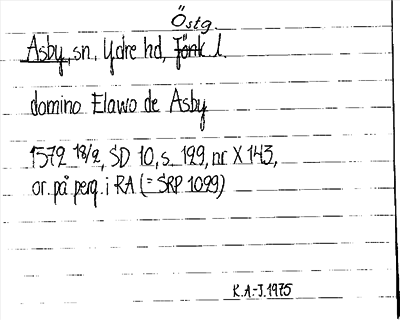 Östg.
Asby, sn, Ydre hd, Jönk l.
domino Elawo de Asby
1372 18/2, SD 10, s. 129, nr X 143,
or. på perg. i RA (= SRP 1099)
K.A-J. 1975